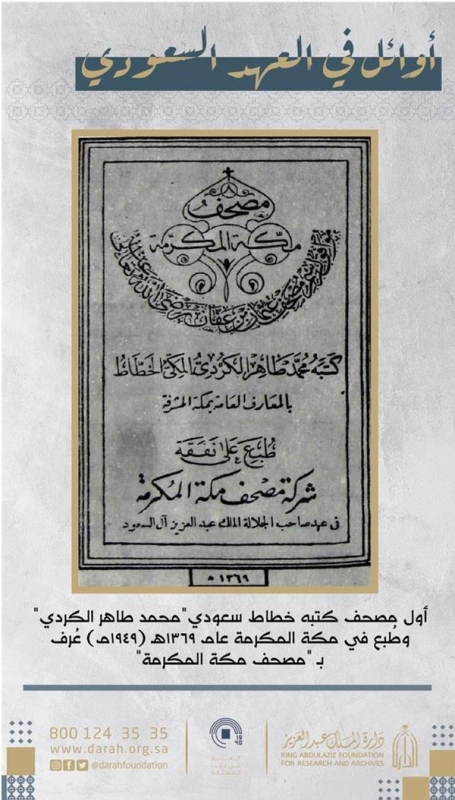 أوائل في العهد السعودي
مصحف
مكة المكرمة
كتبه محمد طاهر الكردي المكي الخطاط
بالمعارف العامة بمكة المشرفة
طبع على نفقة
شركة مصحف مكة المكرمة
في عهد صاحب الجلالة الملك عبد العزيز آل السعود
١٣٦٩ هـ
أول مصحف كتبه خطاط سعودي "محمد طاهر الكردي"
وطُبع في مكة المكرمة عام ١٣٦٩هـ (١٩٤٩م) عُرف
بـ "مصحف مكة المكرمة"
800 124 35 35
www.darah.org.sa
@darahfoundation
دارة الملك عبد العزيز
KING ABDULAZIZ FOUNDATION
FOR RESEARCH AND ARCHIVES